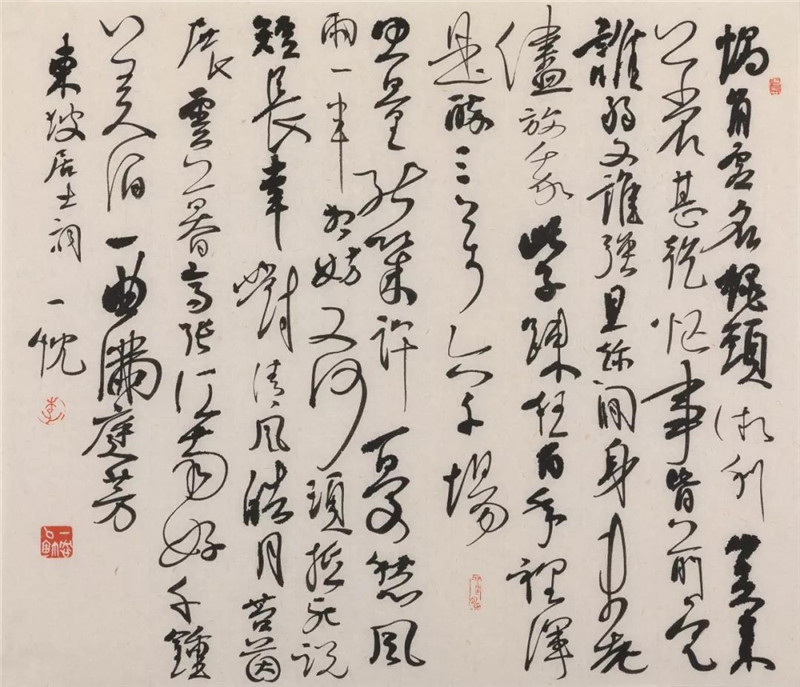 蝸角虛名蠅頭微利算來
著甚乾忙事皆前定
誰弱又誰強且趁閒身未老
儘放我些子疎狂百年裡渾
是醉三萬六千場
思量能幾許憂愁風
雨一半相妨又何須抵死說
短長幸對清風皓月苔茵
展雲幕高張江南好千鍾
美酒一曲滿庭芳
東坡居士詞 一